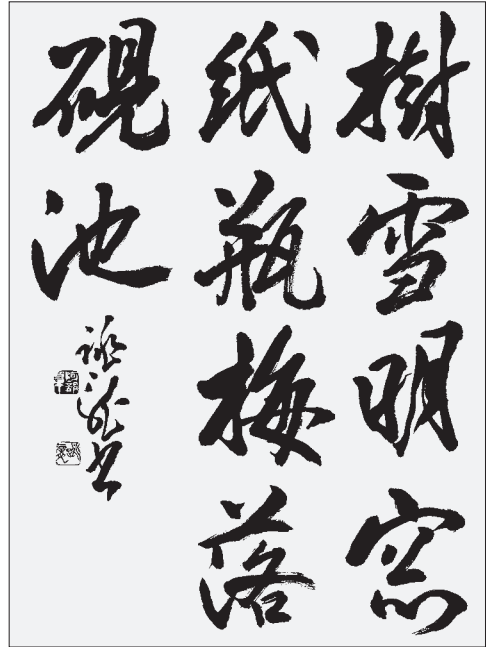 樹雪明窓
紙瓶梅落
硯池